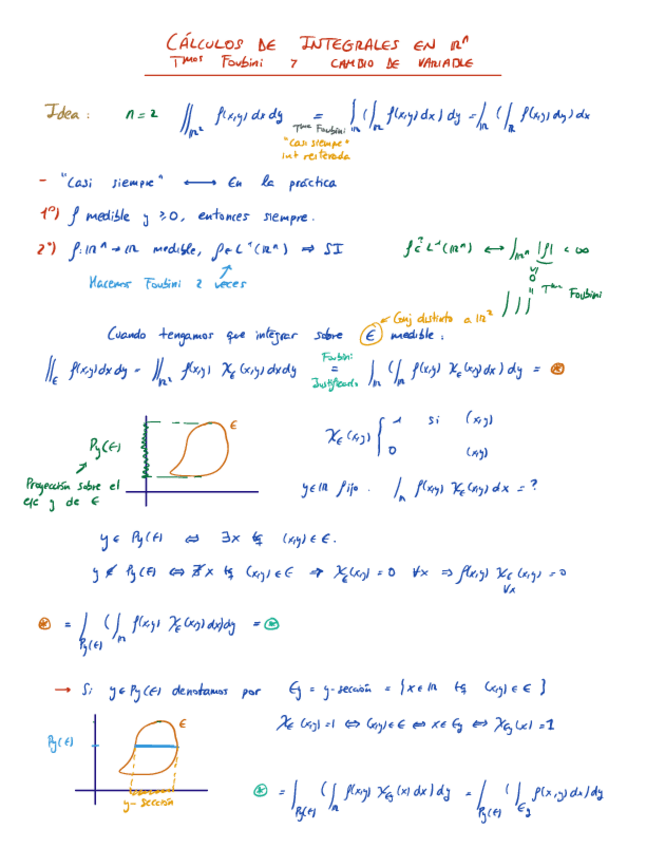 CÁLCULOS DE INTEGRALES EN ℝⁿ
Tmos Foubini y CAMBIO DE VARIABLE
Idea: n=2 ∬_ℝ² f(x,y) dx dy = ∫_ℝ (∫_ℝ f(x,y) dx) dy = ∫_ℝ (∫_ℝ f(x,y) dy) dx
Tma Foubini
"casi siempre"
int reiterada
- "Casi siempre" ⟷ En la práctica
1º) f medible y ≥0, entonces siempre.
2º) f: ℝⁿ → ℝ medible, f ∈ L¹(ℝⁿ) ⇒ SI
f ∈? L¹(ℝⁿ) ⟷ ∫_ℝⁿ |f| < ∞
Hacemos Foubini 2 veces
0
∫∫∫ Tma Foubini
Cuando tengamos que integrar sobre E medible:
Conj distinto a ℝ²
∬_E f(x,y) dx dy = ∬_ℝ² f(x,y) χ_E(x,y) dx dy = ∫_ℝ (∫_ℝ f(x,y) χ_E(x,y) dx) dy = ⊛
Foubini
Justificado
E
Py(E)
Proyección sobre el
eje y de E
χ_E(x,y) { 1 si (x,y)
0 (x,y)
y∈ℝ fijo. ∫_ℝ f(x,y) χ_E(x,y) dx = ?
y ∈ Py(E) ⇔ ∃x tq (x,y) ∈ E.
y ∉ Py(E) ⇔ ∄x tq (x,y) ∈ E ⇒ χ_E(x,y) = 0 ∀x ⇒ f(x,y) χ_E(x,y) = 0
∀x
⊛ = ∫_Py(E) (∫_ℝ f(x,y) χ_E(x,y) dx) dy = ⊛
→ Si y∈Py(E) denotamos por Ey = y-sección = {x∈ℝ tq (x,y) ∈ E}
χ_E(x,y) = 1 ⇔ (x,y) ∈ E ⇔ x∈Ey ⇔ χ_Ey(x) = 1
E
Py(E)
y-sección
⊛ = ∫_Py(E) (∫_ℝ f(x,y) χ_Ey(x) dx) dy = ∫_Py(E) (∫_Ey f(x,y) dx) dy